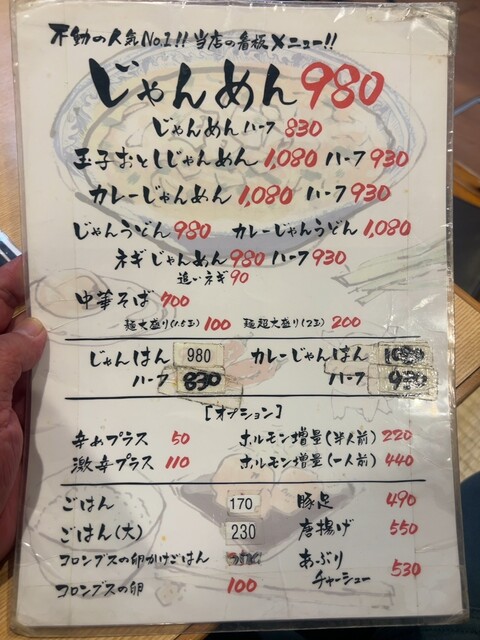 不動の人気No.1!! 当店の看板メニュー!!
じゃんめん 980
じゃんめんハーフ 830
玉子おとしじゃんめん 1,080 ハーフ 930
カレーじゃんめん 1,080 ハーフ 930
じゃんうどん 980 カレーじゃんうどん 1,080
ネギじゃんめん 980 ハーフ 930
追いネギ 90
中華そば 700
麺大盛り(1.5玉) 100 麺超大盛り(2玉) 200
じゃんはん 980 カレーじゃんはん
ハーフ 830 ハーフ 930
[オプション]
辛めプラス 50 ホルモン増量(半人前) 220
激辛プラス 110 ホルモン増量(一人前) 440
ごはん 170 豚足 490
ごはん(大) 230 唐揚げ 550
コロンブスの卵かけごはん あぶりチャーシュー 530
コロンブスの卵 100